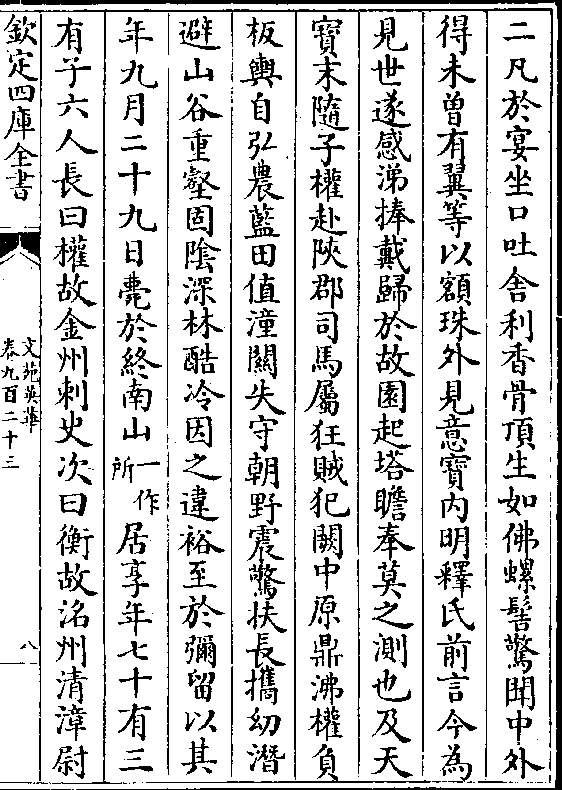 二凡於宴坐口吐舎利香骨頂生如佛螺髻驚聞中外
得未曽有翼等以額珠外見意寳内明釋氏前言今為
見世遂感涕捧戴歸於故園起塔瞻奉莫之測也及天
寳末隨子權赴陜郡司馬屬狂賊犯闕中原鼎沸權負
板輿自弘農藍田值潼關失守朝野震驚扶長攜幼潛
避山谷重壑固陰深林酷冷因之違裕至於彌留以其
年九月二十九日薨於終南山一作所居享年七十有三
有子六人長曰權故金州刺史次曰衡故洺州清漳尉
欽定四庫全書
文苑英華
卷九百二十三
八